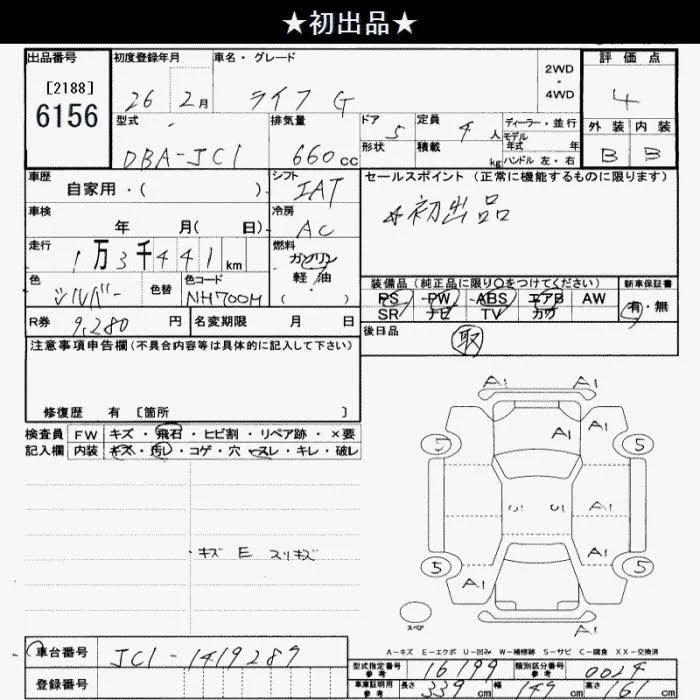 ★初出品★
出品番号
[2188]
6156
初度登録年月
26 2月
車名・グレード
ライフ G
2WD
・
4WD
評価点
4
外装 内装
B B
型式
DBA-JC1
排気量
660cc
ドア 5
形状
定員 4人
積載 kg
ディーラー・並行
モデル年式 年
ハンドル 左・右
車歴
自家用・( )
シフト
IAT
セールスポイント (正常に機能するものに限ります)
☆初出品
車検
年 月( 日)
冷房
AC
走行
1万3千441km
燃料
ガソリン
軽・油
( )
色
シルバー
色替
色コード
NH700M
装備品(純正品に限り○をつけてください)
PS PW ABS エアB AW
SR ナビ TV カワ
新車保証書
有・無
R券 9,280円
名変期限 月 日
後日品
取
注意事項申告欄(不具合内容等は具体的に記入して下さい)
修復歴 有 〔箇所 〕
検査員 FW キズ・飛石・ヒビ割・リペア跡・×要
記入欄 内装 キズ・汚レ・コゲ・穴・スレ・キレ・破レ
・キズ E スリキズ
A1 A1
A1 A1
5 5
U1 U1 A1
A1
5 5
A1
A1
スペア
A-キズ E-エクボ U-凹み W-補修跡 S-サビ C-腐食 XX-交換済
車台番号 JC1-1419289
登録番号
型式指定番号 参考 16199
類別区分番号 参考 0024
車庫証明用 参考 長さ 339cm 幅 149cm 高さ 161cm